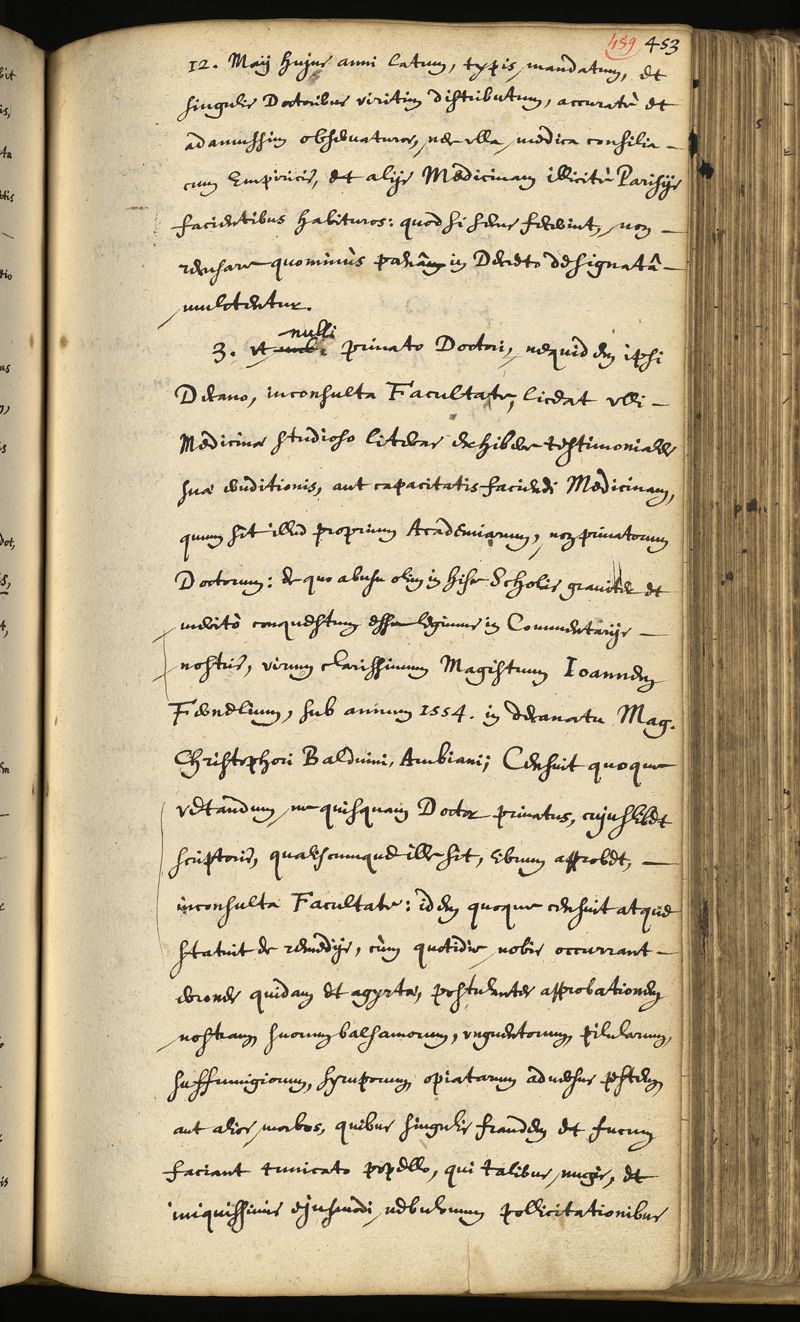 459 453
12. Maij hujus anni latum, typis mandatum, et
singulis Doctoribus viritim distributum, accuratè et
adamussim observaturos, nec ulla medica consilia
cum Empiricis, et alijs Medicinam illicitè Parisijs
facientibus habituros: quod si secus fecerint, non
recusare quominùs poenâ in Decreto designatâ
mulctentur.
nulli
3. vt privato Doctori, nequidem ipsi
Decano, inconsulta Facultate, liceat vlli
Medicinae studioso literas exhibere testimoniales
suae eruditionis, aut capacitatis faciendi Medicinam,
quum sit illud proprium Academiarum, non privatorum
Doctorum: de quo abusu olim in hisce Scholis graviter et
meritò conquestum esse legimus in Commentarijs
nostris, virum clarissimum Magistrum Ioannem
Fernelium, sub annum 1554. in decanatu Mag.
Christophori Balduini, Ambiani; Censuit quoque
vetandum ne quisquam Doctor privatus, cujuslibet
scriptoris, qualiscumque ille sit, librum approbet,
inconsulta Facultate: idem quoque censuit atque
statuit de remedijs, cùm quotidie nobis occurrant
errones quidam et agyrtae, postulantes approbationem
nostram suorum balsamorum, vnguentorum, pilularum,
suffumigiorum, syruporum, opiatarum adversus pestem
aut alios morbos, quibus singulis fraudem et fucum
faciant tunicato popello, qui talibus nugis, et
iniquissimis ejusmodi nebulonum pollicitationibus